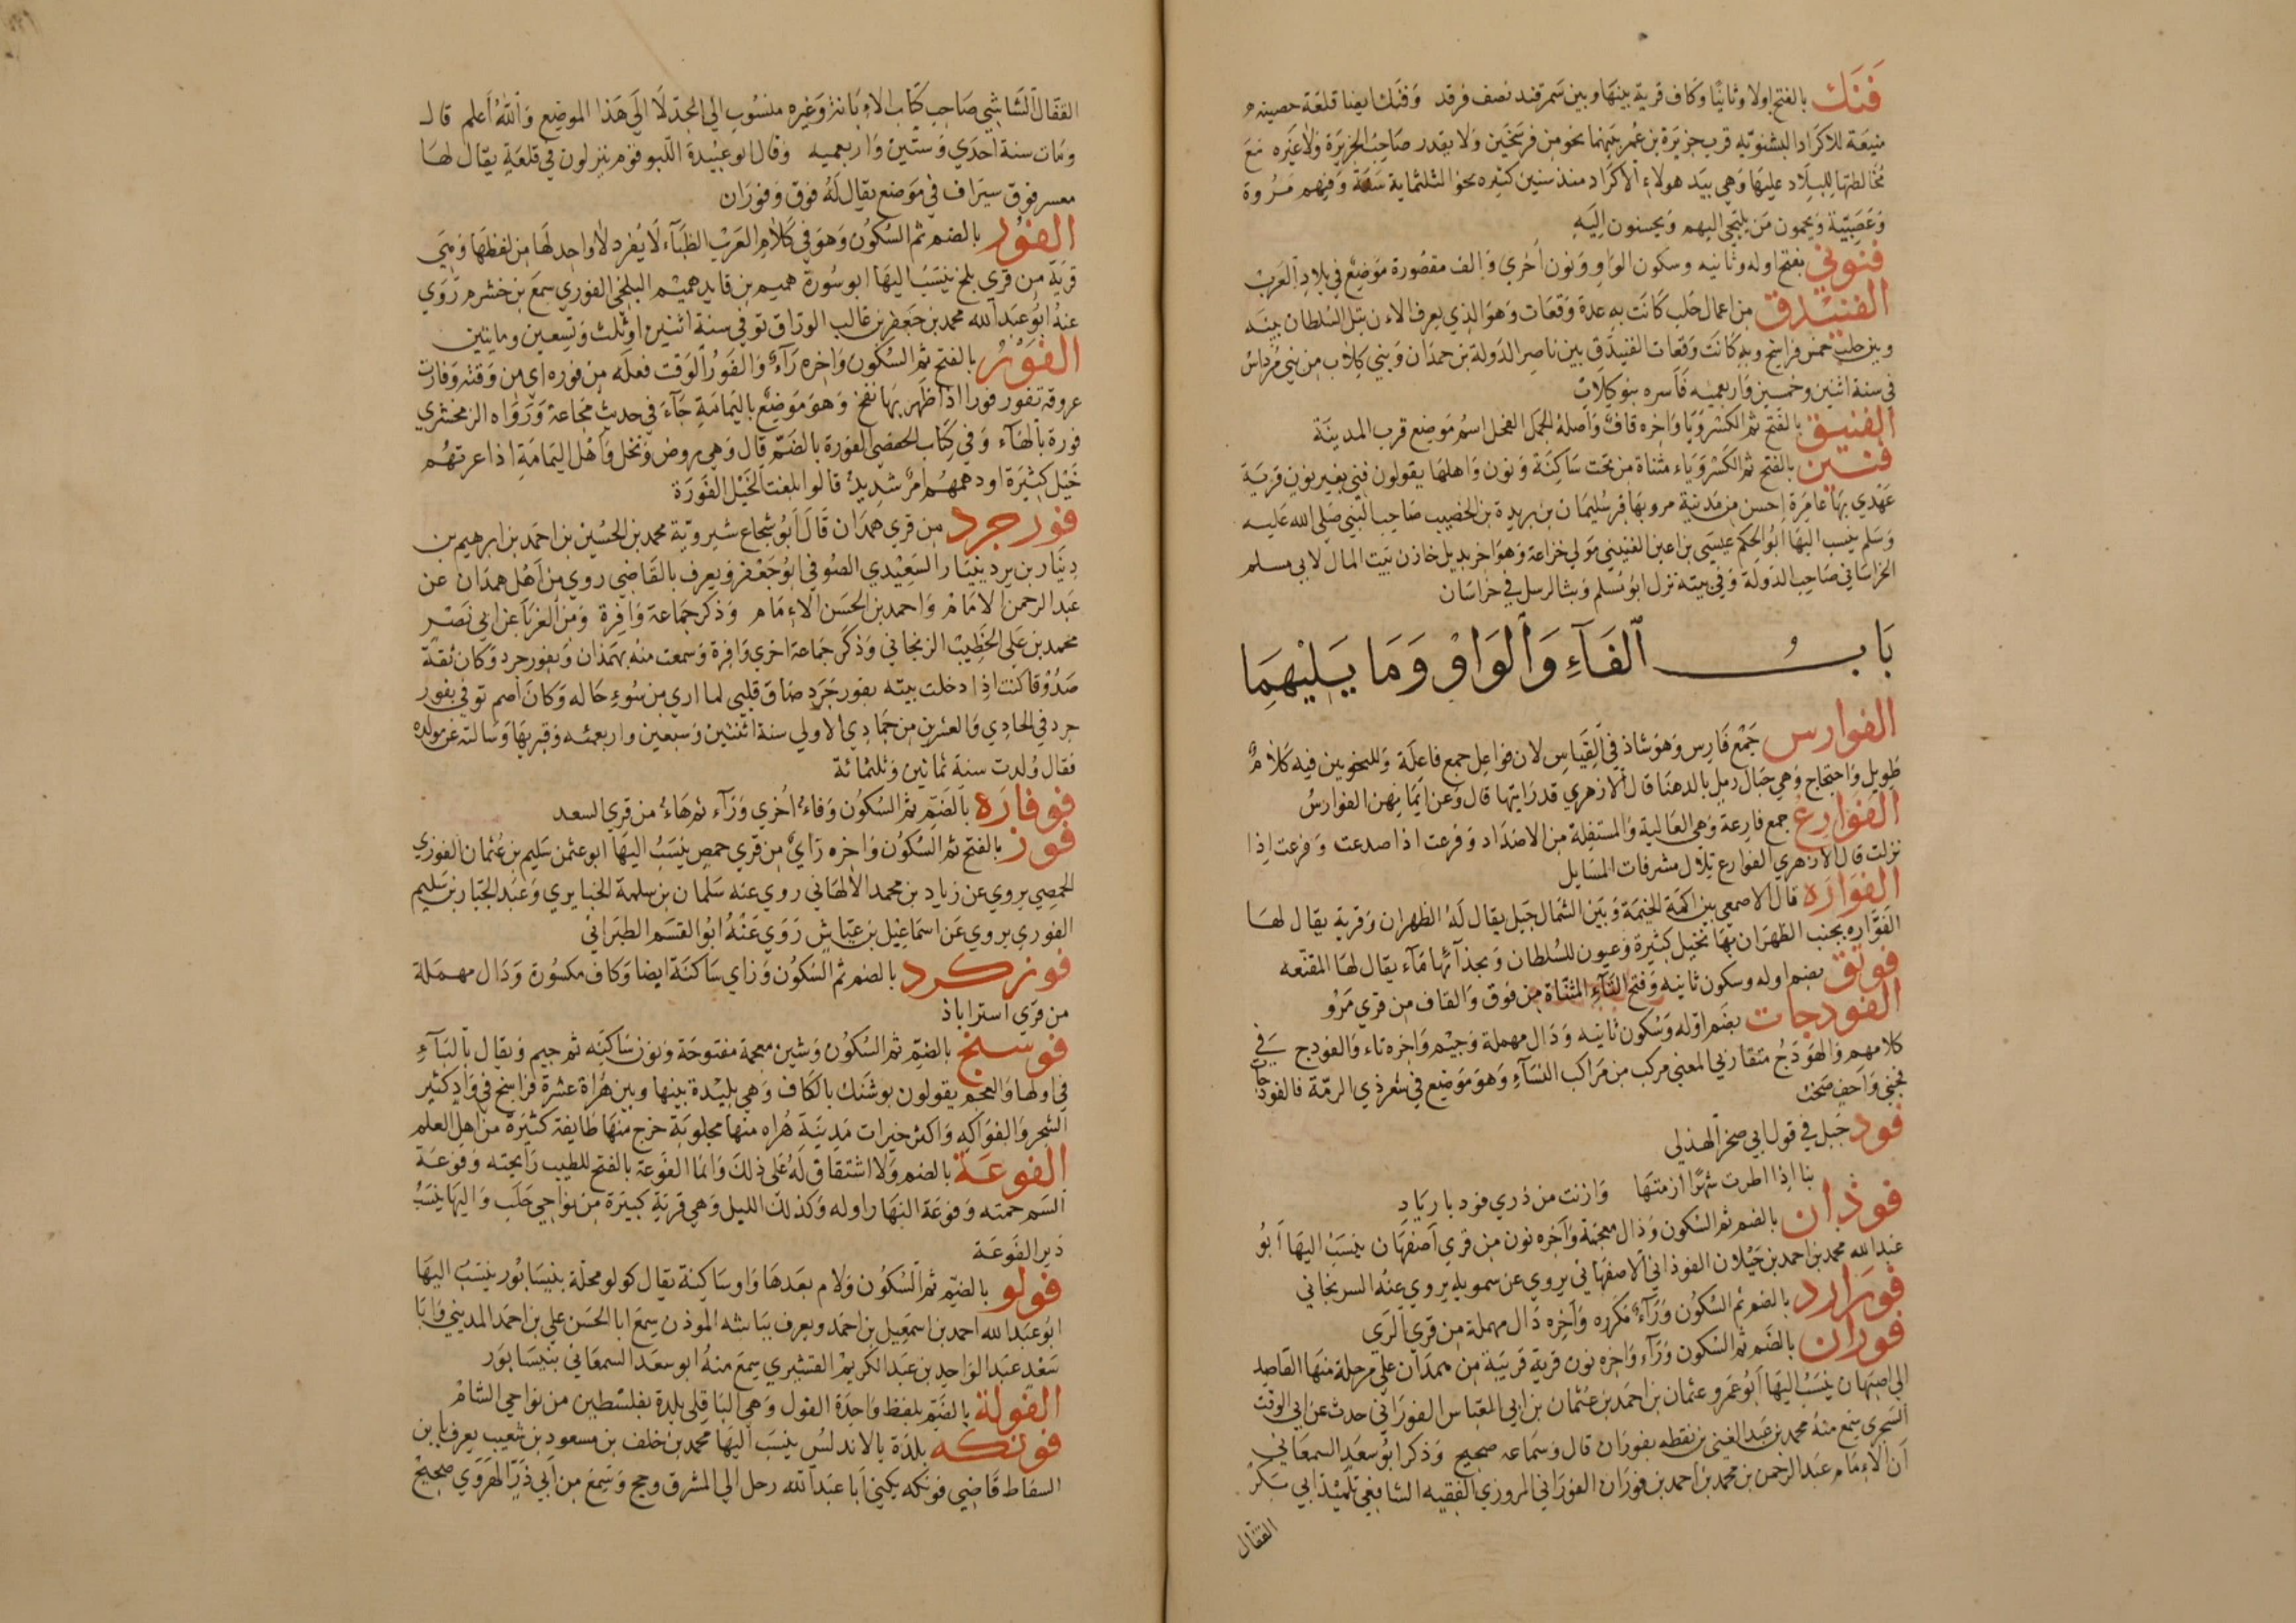 فَنَك بالفتح اولا وثانيًا وكاف قرية بينها وبين سمرقند نصف فرقد وفنك ايضا قلعة حصينه
منيعة للاكراد البشنويه قرب جزيرة بن عمر بينهما نحو من فرسخين ولا يقدر صاحب الجزيرة ولا غيره مع
مخالطتها للبلاد عليها وهي بيد هولاء الاكراد منذ سنين كثيره نحو الثلثماية سنة وفيهم مروة
وعصبيّية ويحمون من يلتجى اليهم ويحسنون اليه
فنوني بفتح اوله وثانيه وسكون الواو ونون اخرى والف مقصورة موضع في بلاد العرب
الفنيدق من اعمال حلب كانت به عدة وقعات وهو الذي يعرف الان بتل السلطان بينه
وبين حلب خمس فراسخ وبه كانت وقعات الفنيدق بين ناصر الدولة بن حمدان وبني كلاب من بني مرداس
في سنة اثنين وخمسين واربعميه فاسره بنو كلاب
الفنيق بالفتح ثم الكسر ويا واخره قاف واصله الجمل الفحل اسم موضع قرب المدينة
فنين بالفتح ثم الكسر وياء مثناة من تحت ساكنة ونون واهلها يقولون فني بغير نون قرية
عهدي بها عامرة احسن من مدينة مرو بها قبر سليمان بن بريدة بن الخصيب صاحب النبي صلى الله عليه
وسلم ينسب اليها ابو الحكم عيسى بن اعين الفنيني مولي خزاعة وهو اخو بديل خازن بيت المال لابي مسلم
الخراساني صاحب الدولة وفي بيته نزل ابو مسلم وبث الرسل في خراسان
باب الفآء والواو وما يليهما
الفوارس جمع فارس وهو شاذ في القياس لان فواعل جمع فاعلة وللنحويين فيه كلام
طويل واحتجاج وهي جبال رمل بالدهنا قال الازهري قد رايتها قال وعن ايمانهن الفوارس
الفوارع جمع فارعة وهي العالية والمستفلة من الاضداد وفرعت اذا صعدت وفرعت اذا
نزلت قال الازهري الفوارع تلال مشرفات المسايل
الفواره قال الاصمعي بين اكمة الخيمة وبين الشمال جبل يقال له الظهران وقرية يقال لها
الفوّاره بجنب الظهران بها نخيل كثيرة وعيون للسلطان وبحذآئها مآء يقال لها المقنعه
فوتق بضم اوله وسكون ثانيه وفتح التآء المثناة من فوق والقاف من قري مرو
الفودجات بضم اوله وسكون ثانيه ودال مهملة وجيم واخره تاء والفودج في
كلامهم والهودج متقاربي المعني مركب من مراكب النسآء وهو موضع في شعر ذي الرمة فالفودجات
فجنبي واحف صخب
فود جبل في قول ابي صخر الهذلي
بنا اذا اطرت شهرًا ازمتها وازنت من ذري فود باريَاد
فوذان بالضم ثم السكون وذال معجمة وآخره نون من قري اصفهان ينسب اليها ابو
عبد الله محمد بن احمد بن خيلان الفوذاني الاصفهاني يروي عن سمويه يروي عنه السريجاني
فورارد بالضم ثم السكون ورآء مكرره وآخره دال مهملة من قري الرى
فوران بالضم ثم السكون ورآء واخره نون قرية قريبة من همدان على مرحلة منها القاصد
الي اصبهان ينسب اليها ابو عمرو عثمان بن احمد بن عثمان بن ابي العباس الفوراني حدث عن ابي الوقت
السجزي سمع منه محمد بن عبد الغني بن نقطه بفوران قال وسماعه صحيح وذكر ابو سعد السمعاني
ان الامام عبد الرحمن بن محمد بن احمد بن فوران الفوراني المروزي الفقيه الشافعي تلميذ ابي بكر
القفال
القفال الشاشي صاحب كتاب الابانة وغيره منسوب الي الجد لا الي هذا الموضع والله اعلم قال
ومات سنة احدي وستين واربعميه وقال ابو عبيدة اللبو قوم ينزلون في قلعة يقال لها
معسر فوق سيراف في موضع يقال له فوق وفوران
الفور بالضم ثم السكون وهو في كلام العرب الظبآء لا يفرد لا واحد لها من لفظها وهي
قرية من قري بلخ ينسب اليها ابو سورة هميم بن قايد هميم البلخي الفوري سمع بن خشرم روي
عنه ابو عبد الله محمد بن جعفر بن غالب الوراق توفي سنة اثنين او ثلث وتسعين ومايتين
الفَوْر بالفتح ثم السكون واخره رآء والفور الوقت فعله من فوره اي من وقته وفارت
عروقه تفور فورا اذا ظهر بها نفخ وهو موضع باليمامة جآء في حديث مجاعة ورواه الزمخشري
فورة بالهآء وفي كتاب الحفصي الفورة بالضم قال وهي روض ونخل واهل اليمامة اذا غزتهم
خيل كثيرة او دهمهم امر شديد قالوا بلغت الخيل الفورة
فورجرد من قري همدان قال ابو شجاع شيروية محمد بن الحسين بن احمد بن ابرهيم بن
دينار بن يرد ينبار السعيدي الصوفي ابو جعفر ويعرف بالقاضي روي من اهل همدان عن
عبد الرحمن الامام واحمد بن الحسن الامام وذكر جماعة وافرة ومن الغربا عن ابي نصر
محمد بن علي الخطيب الزنجاني وذكر جماعة اخري وافرة وسمعت منه بهمذان وبفورجرد وكان ثقة
صدوقا كنت اذا دخلت بيته بفورجرد ضاق قلبي لما اري من سوء حاله وكان اصم توفي بفور
جرد في الحادي والعشرين من جمادي الاولي سنة اثنتين وسبعين واربعمئه وقبر بها وسالته عن مولده
فقال ولدت سنة ثمانين وثلثمائة
فوفاره بالضم ثم السكون وفاء اخري ورآء ثم هاء من قري السعد
فوز بالفتح ثم السكون واخره زاي من قري حمص ينسب اليها ابو عثمن سليم بن عثمان الفوزي
الحمصي يروي عن زياد بن محمد الالهاني روي عنه سلمان بن سلمة الخبايري وعبد الجبار بن سليم
الفوري يروي عن اسماعيل بن عياش روي عنه ابو القسم الطبراني
فوزكرد بالضم ثم السكون وزاي ساكنة ايضا وكاف مكسورة ودال مهملة
من قري استراباذ
فوشنج بالضم ثم السكون وشين معجمة مفتوحة ونون ساكنه ثم جيم ويقال بالبآء
في اولها والعجم يقولون بوشنك بالكاف وهي بليدة بينها وبين هراة عشرة فراسخ في واد كثير
الشجر والفواكه واكثر خيرات مدينة هراه منها مجلوبة خرج منها طايفة كثيرة من اهل العلم
الفوعة بالضم ولا اشتقاق له على ذلك وانما الفوعة بالفتح للطيب رايحته وفوعة
السم حمته وفوعة النهار اوله وكذلك الليل وهي قرية كبيرة من نواحي حلب واليها ينسب
دير الفوعة
فولو بالضم ثم السكون ولام بعدها واو ساكنة يقال كولو محلة بنيسابور ينسب اليها
ابو عبد الله احمد بن اسمعيل بن احمد ويعرف بباشه الموذن سمع ابا الحسن علي بن احمد المديني وابا
سعيد عبد الواحد بن عبد الكريم القشيري سمع منه ابو سعد السمعاني بنيسابور
الفولة بالضم بلفظ واحدة الفول وهي الباقلى بلدة بفلسطين من نواحي الشام
فونكه بلدة بالاندلس ينسب اليها محمد بن خلف بن مسعود بن شعيب يعرف بابن
السقاط قاضي فونكه يكني ابا عبد الله رحل الي المشرق وحج وسمع من ابي ذر الهروي صحيح